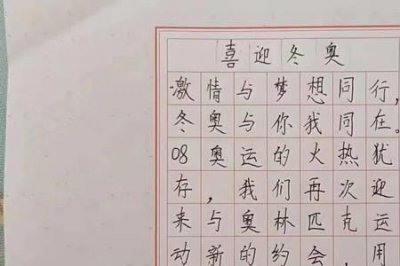 喜迎冬奥
激情与梦想同行,
冬奥与你我同在。
08奥运的火热犹
存,我们再次迎
来与奥林匹克运
动新的约会,用